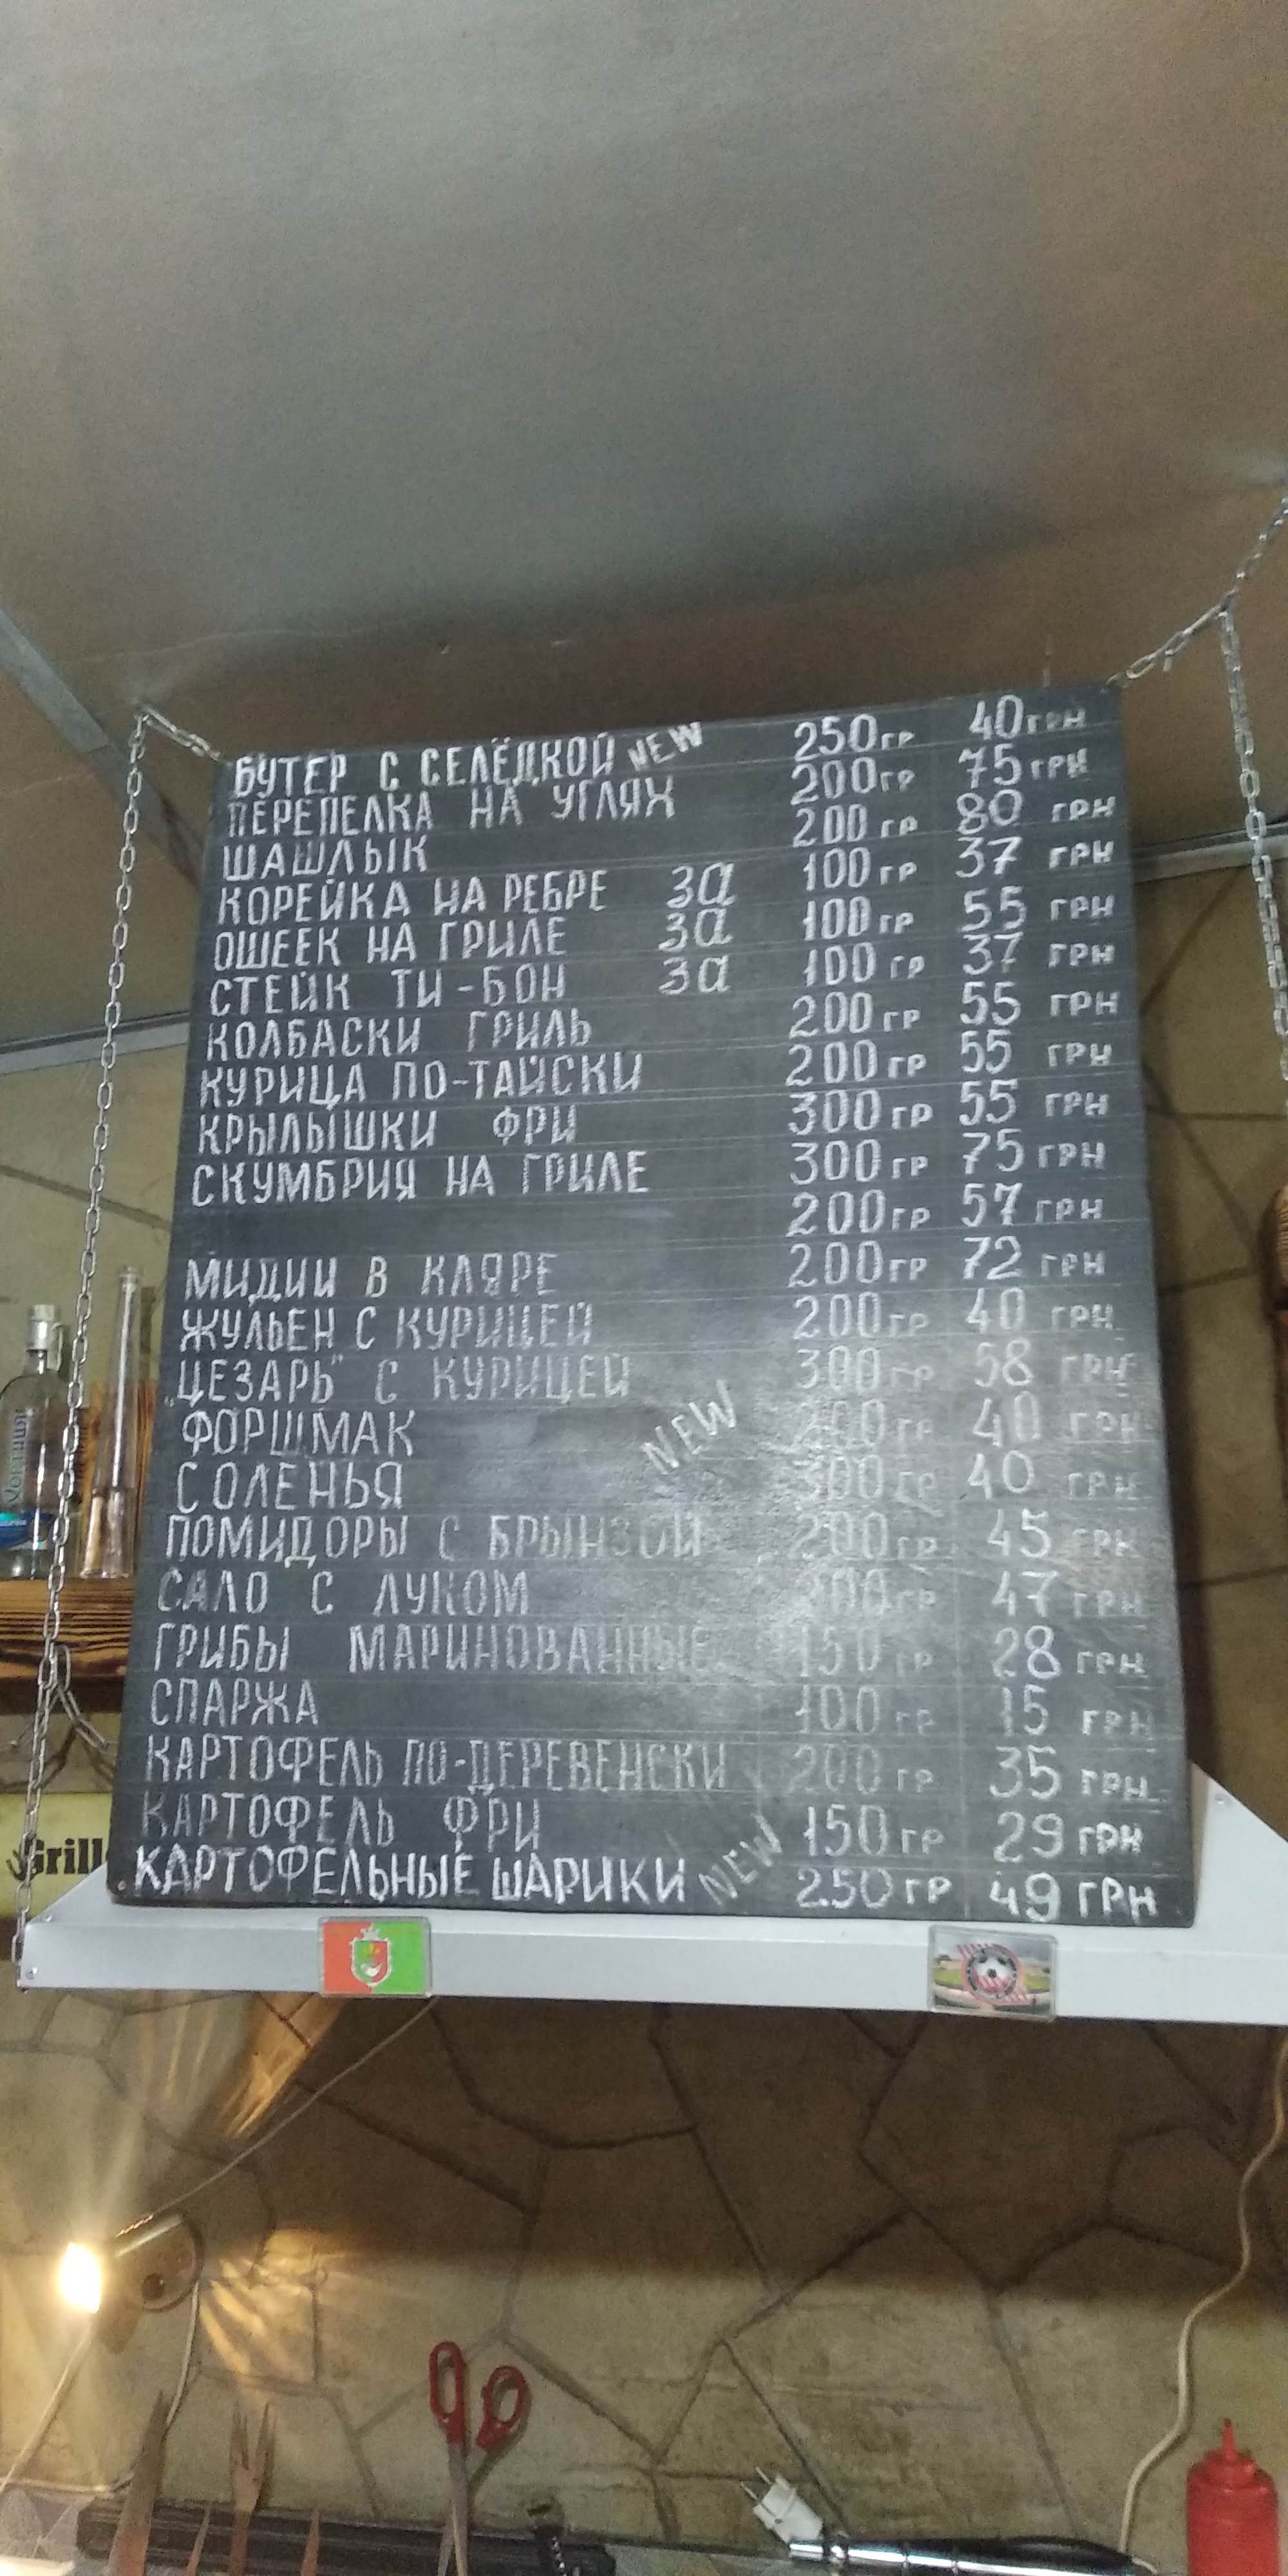 БУТЕР С СЕЛЁДКОЙ NEW 250гр 40грн
ПЕРЕПЕЛКА НА УГЛЯХ 200гр 75грн
ШАШЛЫК 200 гр 80 грн
КОРЕЙКА НА РЕБРЕ ЗА 100гр 37 грн
ОШЕЕК НА ГРИЛЕ ЗА 100гр 55 грн
СТЕЙК ТИ-БОН ЗА 100 гр 37 грн
КОЛБАСКИ ГРИЛЬ 200 гр 55 грн
КУРИЦА ПО-ТАЙСКИ 200гр 55 грн
КРЫЛЫШКИ ФРИ 300гр 55 грн
СКУМБРИЯ НА ГРИЛЕ 300гр 75грн
200гр 57грн
МИДИИ В КЛЯРЕ 200гр 72 грн
ЖУЛЬЕН С КУРИЦЕЙ 200гр 40 грн
„ЦЕЗАРЬ" С КУРИЦЕЙ 300гр 58 грн
ФОРШМАК NEW гр 40 грн
СОЛЕНЬЯ 300гр 40 грн
ПОМИДОРЫ С БРЫНЗОЙ 200гр 45 грн
САЛО С ЛУКОМ гр 47 грн
ГРИБЫ МАРИНОВАННЫЕ 150 гр 28 грн
СПАРЖА 100 гр 15 грн
КАРТОФЕЛЬ ПО-ДЕРЕВЕНСКИ 200 гр 35 грн
КАРТОФЕЛЬ ФРИ 150гр 29 грн
КАРТОФЕЛЬНЫЕ ШАРИКИ NEW 250гр 49 ГРН
Grill